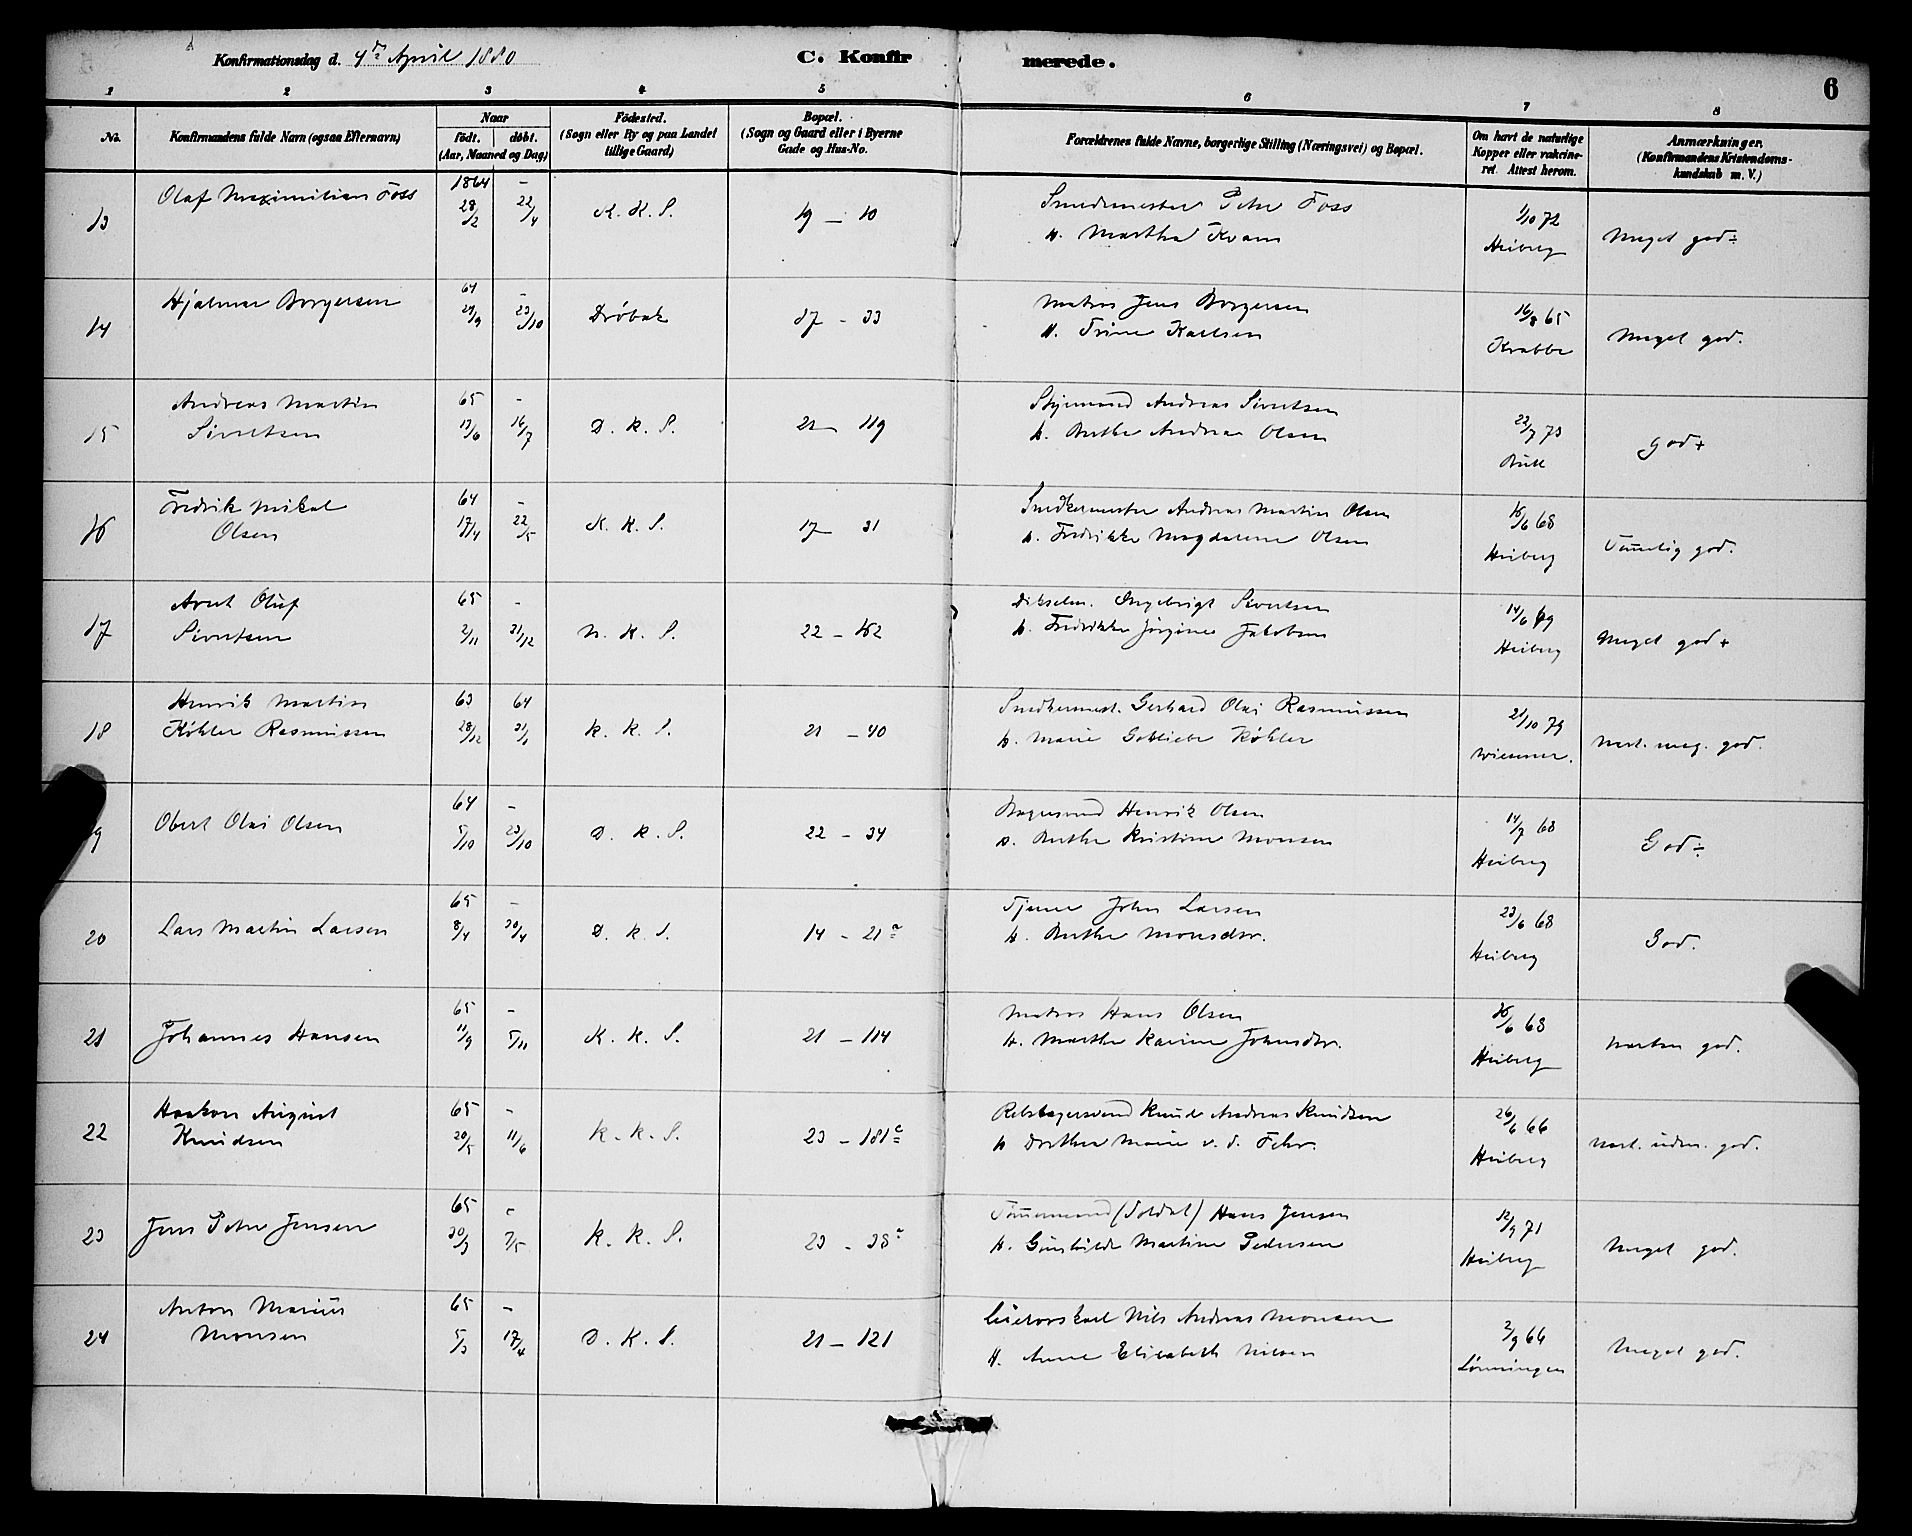 Konfirmationsdag d. 4de April 1880
C. Konfirmerede.
6
1 2 3 4 5 6 7 8
No.
Konfirmandens fulde Navn (ogsaa Efternavn)
Naar
födt. döbt.
(Aar, Maaned og Dag)
Födested.
(Sogn eller By og paa Landet
tillige Gaard)
Bopæl.
(Sogn og Gaard eller i Byerne
Gade og Hus-No.
Forældrenes fulde Navne, borgerlige Stilling (Næringsvei) og Bopæl.
Om havt de naturlige
Kopper eller vakcine-
ret. Attest herom.
Anmærkninger.
(Konfirmandens Kristendoms-
kundskab m. V.)
13 Olaf Maximilian Foss 1864 28/2 – 22/4 K. K. S. 19 – 10
Smedmester Peter Foss
h. Martha Kvam
1/10 72
Heiberg
Meget god ÷
14 Hjalmar Borgersen 64 24/9 – 23/10 Drøbak 17 – 33
Matros Jens Borgersen
h. Trine Karlsen
16/8 65
Krabbe
Meget god.
15 Andreas Martin
Sivertsen 65 17/6 – 16/7 D. K. S. 21 – 119
Styrmand Andreas Sivertsen
h. Berthe Andrea Olsen
22/7 73
Bull
god +
16 Fredrik Mikal
Olsen 64 17/4 – 22/5 K. K. S. 17 – 31
Snedkermester Andreas Martin Olsen
h. Fredrikke Magdalene Olsen
16/6 68
Heiberg
Temelig god.
17 Arnt Oluf
Sivertsen 65 2/11 – 31/12 N. K. S. 22 – 162
Ingebrigt Sivertsen
h. Fredrikke Jørgine Jakobsen
14/6 69
Heiberg
Meget god +
18 Henrik Martin
Köhler Rasmussen 63 28/12 64 31/1 K. K. S. 21 – 40
Snedkermest. Gerhard Olai Rasmussen
h. Marie Gotliebe Köhler
21/10 79
Wiesener.
Næst. meg. god.
19 Obert Olai Olsen 64 5/10 – 23/10 D. K. S. 22 – 34
Bagersvend Henrik Olsen
h. Berthe Kristine Monsen
14/7 68
Heiberg
God ÷
20 Lars Martin Larsen 65 8/4 – 30/4 D. K. S. 14 – 21a
Tjener John Larsen
h. Berthe Monsdtr.
23/6 68
Heiberg
God.
21 Johannes Hansen 65 11/9 – 5/11 K. K. S. 21 – 114
Matros Hans Olsen
h. Marthe Karine Johnsdtr.
16/6 68
Heiberg
næsten god.
22 Haakon August
Knudsen 65 20/5 – 11/6 K. K. S. 23 – 181c
Rebslagersvend Knud Andreas Knudsen
h. Dorthea Marie v. d. Fehr.
26/6 66
Heiberg
Næst. udm. god.
23 Jens Peter Jensen 65 30/3 – 7/5 K. K. S. 23 – 38a
Tømmermand (Soldat) Hans Jensen
h. Gunhilde Martine Pedersen
12/9 71
Heiberg
Meget god.
24 Anton Marius
Monsen 65 5/3 – 17/4 D. K. S. 21 – 121
Nils Andreas Monsen
h. Anne Elisabeth Nilsen
2/9 66
Lönningen
Meget god.